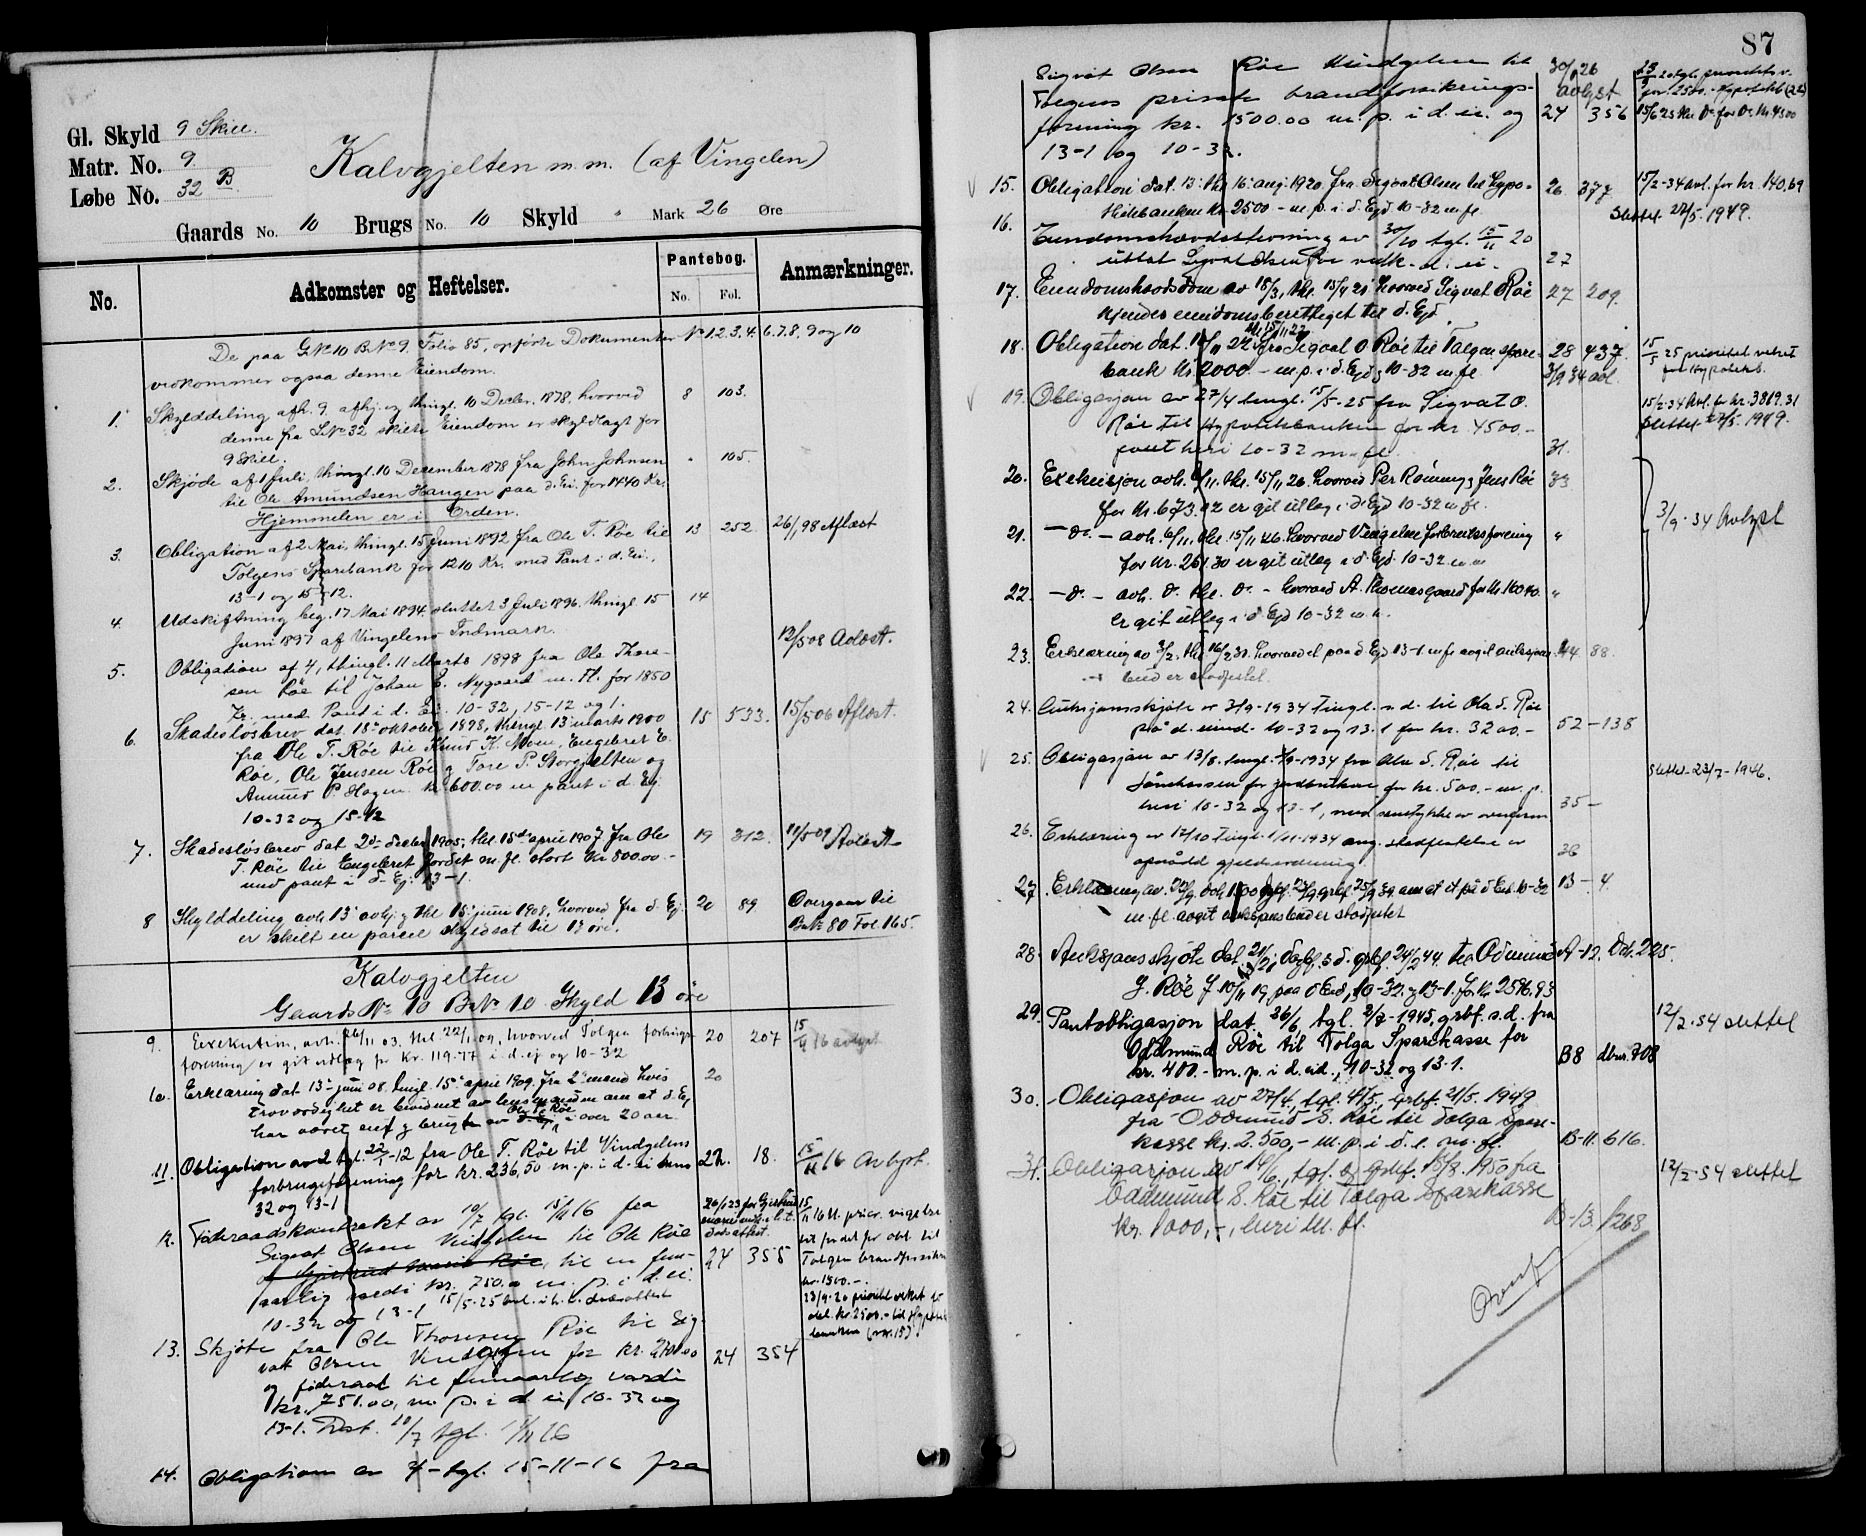 Gl. Skyld 9 Skill.
Matr. No. 9.
Løbe No. 32 B
Kalvgjelten m.m. (af Vingelen)
Gaards No. 10 Brugs No. 10 Skyld " Mark 26 Øre
No. Adkomster og Heftelser. Pantebog. No. Fol. Anmærkninger.
De paa GNo 10 BNo 9. Folio 85, opførte Dokumenter No 1.2.3.4.6.7.8.9 og 10
vedkommer ogsaa denne Eiendom.
1. Skylddeling afh. 9. afhj. og thingl. 10 Decbr. 1878, hvorved 8 103.
denne fra LNo 32 skilte Eiendom er skyldlagt for
9 Skill.
2. Skjøde af 1 Juli, thingl. 10 December 1878 fra John Johnsen " 105.
til Ole Amundsen Haugen paa d. Ei. for 1440 Kr.
Hjemmelen er i Orden.
3. Obligation af 2 Mai, thingl. 15 Juni 1892 fra Ole T. Røe til 13 252. 26/1 98 Aflæst
Tolgens Sparebank for 1210 Kr. med Pant i d. Ei.,
13-1 og 15-12.
4. Udskiftning beg. 17 Mai 1894, sluttet 3 Juli 1896, thingl. 15 14
Juni 1897 af Vingelens Indmark.
5. Obligation af 4, thingl. 11 Marts 1898 fra Ole Thore- 12/5 08 Avlæst.
sen Røe til Johan E. Nygaard m. Fl. for 1850
Kr. med Pant i d. Ei. 10-32, 15-12 og 1.
6. Skadesløsbrev dat. 18de oktober 1898, thingl. 13de marts 1900 15 533. 15/5 06 Aflæst.
fra Ole T. Røe til Knud K. Moen, Engebret E.
Røe, Ole Jensen Røe og Tore P. Storgjelten og
Amund P. Hagen kr. 600.00 m pant i d. Ej.
10-32 og 15-12
7. Skadesløsbrev dat 2de decbr 1905, thl. 15de april 1907 fra Ole 19 312. 11/5 09 Avlæst
T. Røe til Engebret Jordet m. fl. stort kr. 800.00 -
med pant i d. Ej. 13-1.
8 Skylddeling avh. 13 avhj. og thl 15 juni 1908, hvorved fra d. Ej. 20 89. Overgaar til
er skilt en parcel skyldsat til 13 øre. BNo 80 Fol. 165.
Kalvgjelten
Gaards No 10 BNo 10 Skyld 13 øre
9. Exekution, avh. 26/11 03, thl. 22/1 09, hvorved Tolgen forbrugs- 20 207 15/4 16 avlyst
forening er git utlæg for kr. 119.77 i d. ej og 10-32
10. Erklæring dat 13de juni 08, tingl. 15de april 1909, fra 2de mænd hvis 20
troværdighet er bevidnet av lensmanden om at d. Ej
har været eiet og brugt av Ole T. Røe i over 20 aar.
11. Obligation av 2 tgl. 22/1-12 fra Ole T. Røe til Vindgelens 22. 18. 15/11 16 Avlyst.
forbrugsforening for kr. 236,50 m. p. i d. ei
32 og 13-1
12. Føderaadskontrakt av 10/7 tgl. 15/11 16 fra
Sigvat Olsen Vindgelen til Ole Røe 24 355
og Gjertrud Røe, til en fem-
aarlig værdi kr. 750.00 m. p. i d. ei.
10-32 og 13-1
15/11 16 prior. vigelse
Tolgen brandforsikr.
kr. 1500.-
13. Skjøte fra Ole Thoresen Røe til Sig- 24 354
vat Olsen Vindgelen for kr. 2700.00
og føderaad til femaarlig værdi
kr. 751.00, m. p. i d. ei 10-32 og
13-1. Dat. 10/7 tgl. 15/11 16
14. Obligation av tgl. 15-11-16 fra
87
Sigvat Olsen Røe Vindgelen til 30/9 26
Tolgens private brandforsikrings- avlyst
forening kr. 1500.00 m. p. i d. ei. og 24 356
13-1 og 10-32.
15. Obligation dat. 13. thl. 16. aug. 1920. fra Sigvat Olsen til Hypo- 26 377 15/2-34 avl. for kr. 140,69
tekbanken kr. 2500 - m. p. i d. Ejd 10-32 m fl. Slettet 27/5. 1949.
16. Eiendomshævdsstevning av 30/10 tgl. 15/11 20
uttat Sigvat Olsen Røe vedk. d. ei. 27
17. Eiendomshævdsdom av 18/3, thl. 15/4 21 hvorved Sigvat Røe 27 209.
kjendes eiendomsberettiget til d. Ejd.
18. Obligation dat. 11/11 22 thl 15/11 22 fra Sigvat O. Røe til Tolgen spare- 28 437. 15/5 25 prioritet veket
bank kr. 2000 - m. p. i d. Ejd og 10-32 m fl. 3/9 34 avl. for Hypotekb.
19. Obligasjon av 27/4 tingl. 15/5-25 fra Sigvat O. 15/2-34 Avl. for kr. 3819.31
Røe til Hypotekbanken for kr 4500.- Slettet 27/5. 1949.
pant heri 10-32 m. fl. 31.
20. Exekusjon avh. 6/11 thl. 15/11 26. hvorved Per Røning og Jens Røe 33
for kr. 673.92 er git utlæg i d. Ejd 10-32 m fl. 3/9-34 Avlyst
21. - do. - avh. 6/11, thl. 15/11 26. hvorved Vingelens forbruksforening "
for kr. 261.30 er git utlæg i d. Ejd. 10-32 m.m
22. - do. - avh. do. thl. do. - hvorved A. Thomasgaard for kr. 100.40. "
er git utlæg i d Ejd 10-32 m.m.
23. Erklæring av 3/2. thl 16/2 31. hvorved paa d Ejd 13-1 m fl avgit auksjons- 44. 88.
bud er stadfæstet.
24. Auksjonsskjøte av 3/9-1934 tingl. s. d. til Ola S. Røe
på d. eiend. 10-32 og 13-1 for kr. 3200.- 52-138
25. Obligasjon av 13/8. tingl. 3/9-1934 fra Ola S. Røe til Slettet 23/7-1946.
Lånekassen for jordbrukere for kr. 500.- m. p.
heri 10-32 og 13-1, 35-
26. Erklæring av 17/10 tingl. 1/11-1934 ang. stadfestelse av
oppnådd gjeldsordning. 36
27. Erklæring av. om at et på d Eid. 10-32 B-4.
m. fl. avgit auksjonsbud er stadfestet
28. Auksjonsskjøte dat. 21/2 dagbf. s. d. grbf. 24/2 44. til Oddmund A-12. Dok. 225.
S. Røe f. 10/11 19, paa d Eid, 10-32 og 13-1. for kr 2596.93
29. Pantobligasjon dat. 26/6, tgl. 2/7-1945, grbf. s.d. fra 12/2-54 slettet
Oddmund Røe til Tolga Sparekasse for
kr. 400.- m. p. i d. eid., 10-32 og 13-1. B8 dbnr. 708
30. Obligasjon av 27/4, tgl. 4/5., grbf. 21/5. 1949
fra Oddmund S. Røe til Tolga Spare-
kasse kr. 2.500,- m. p. i d. e. m. fl. B-11. 616.
31. Obligasjon av 14/6., tgl. og grbf. 15/8. 1950 fra 12/2-54 slettet
Oddmund S. Røe til Tolga Sparekasse
kr. 1000,-, heri m. fl. B-13. 1268